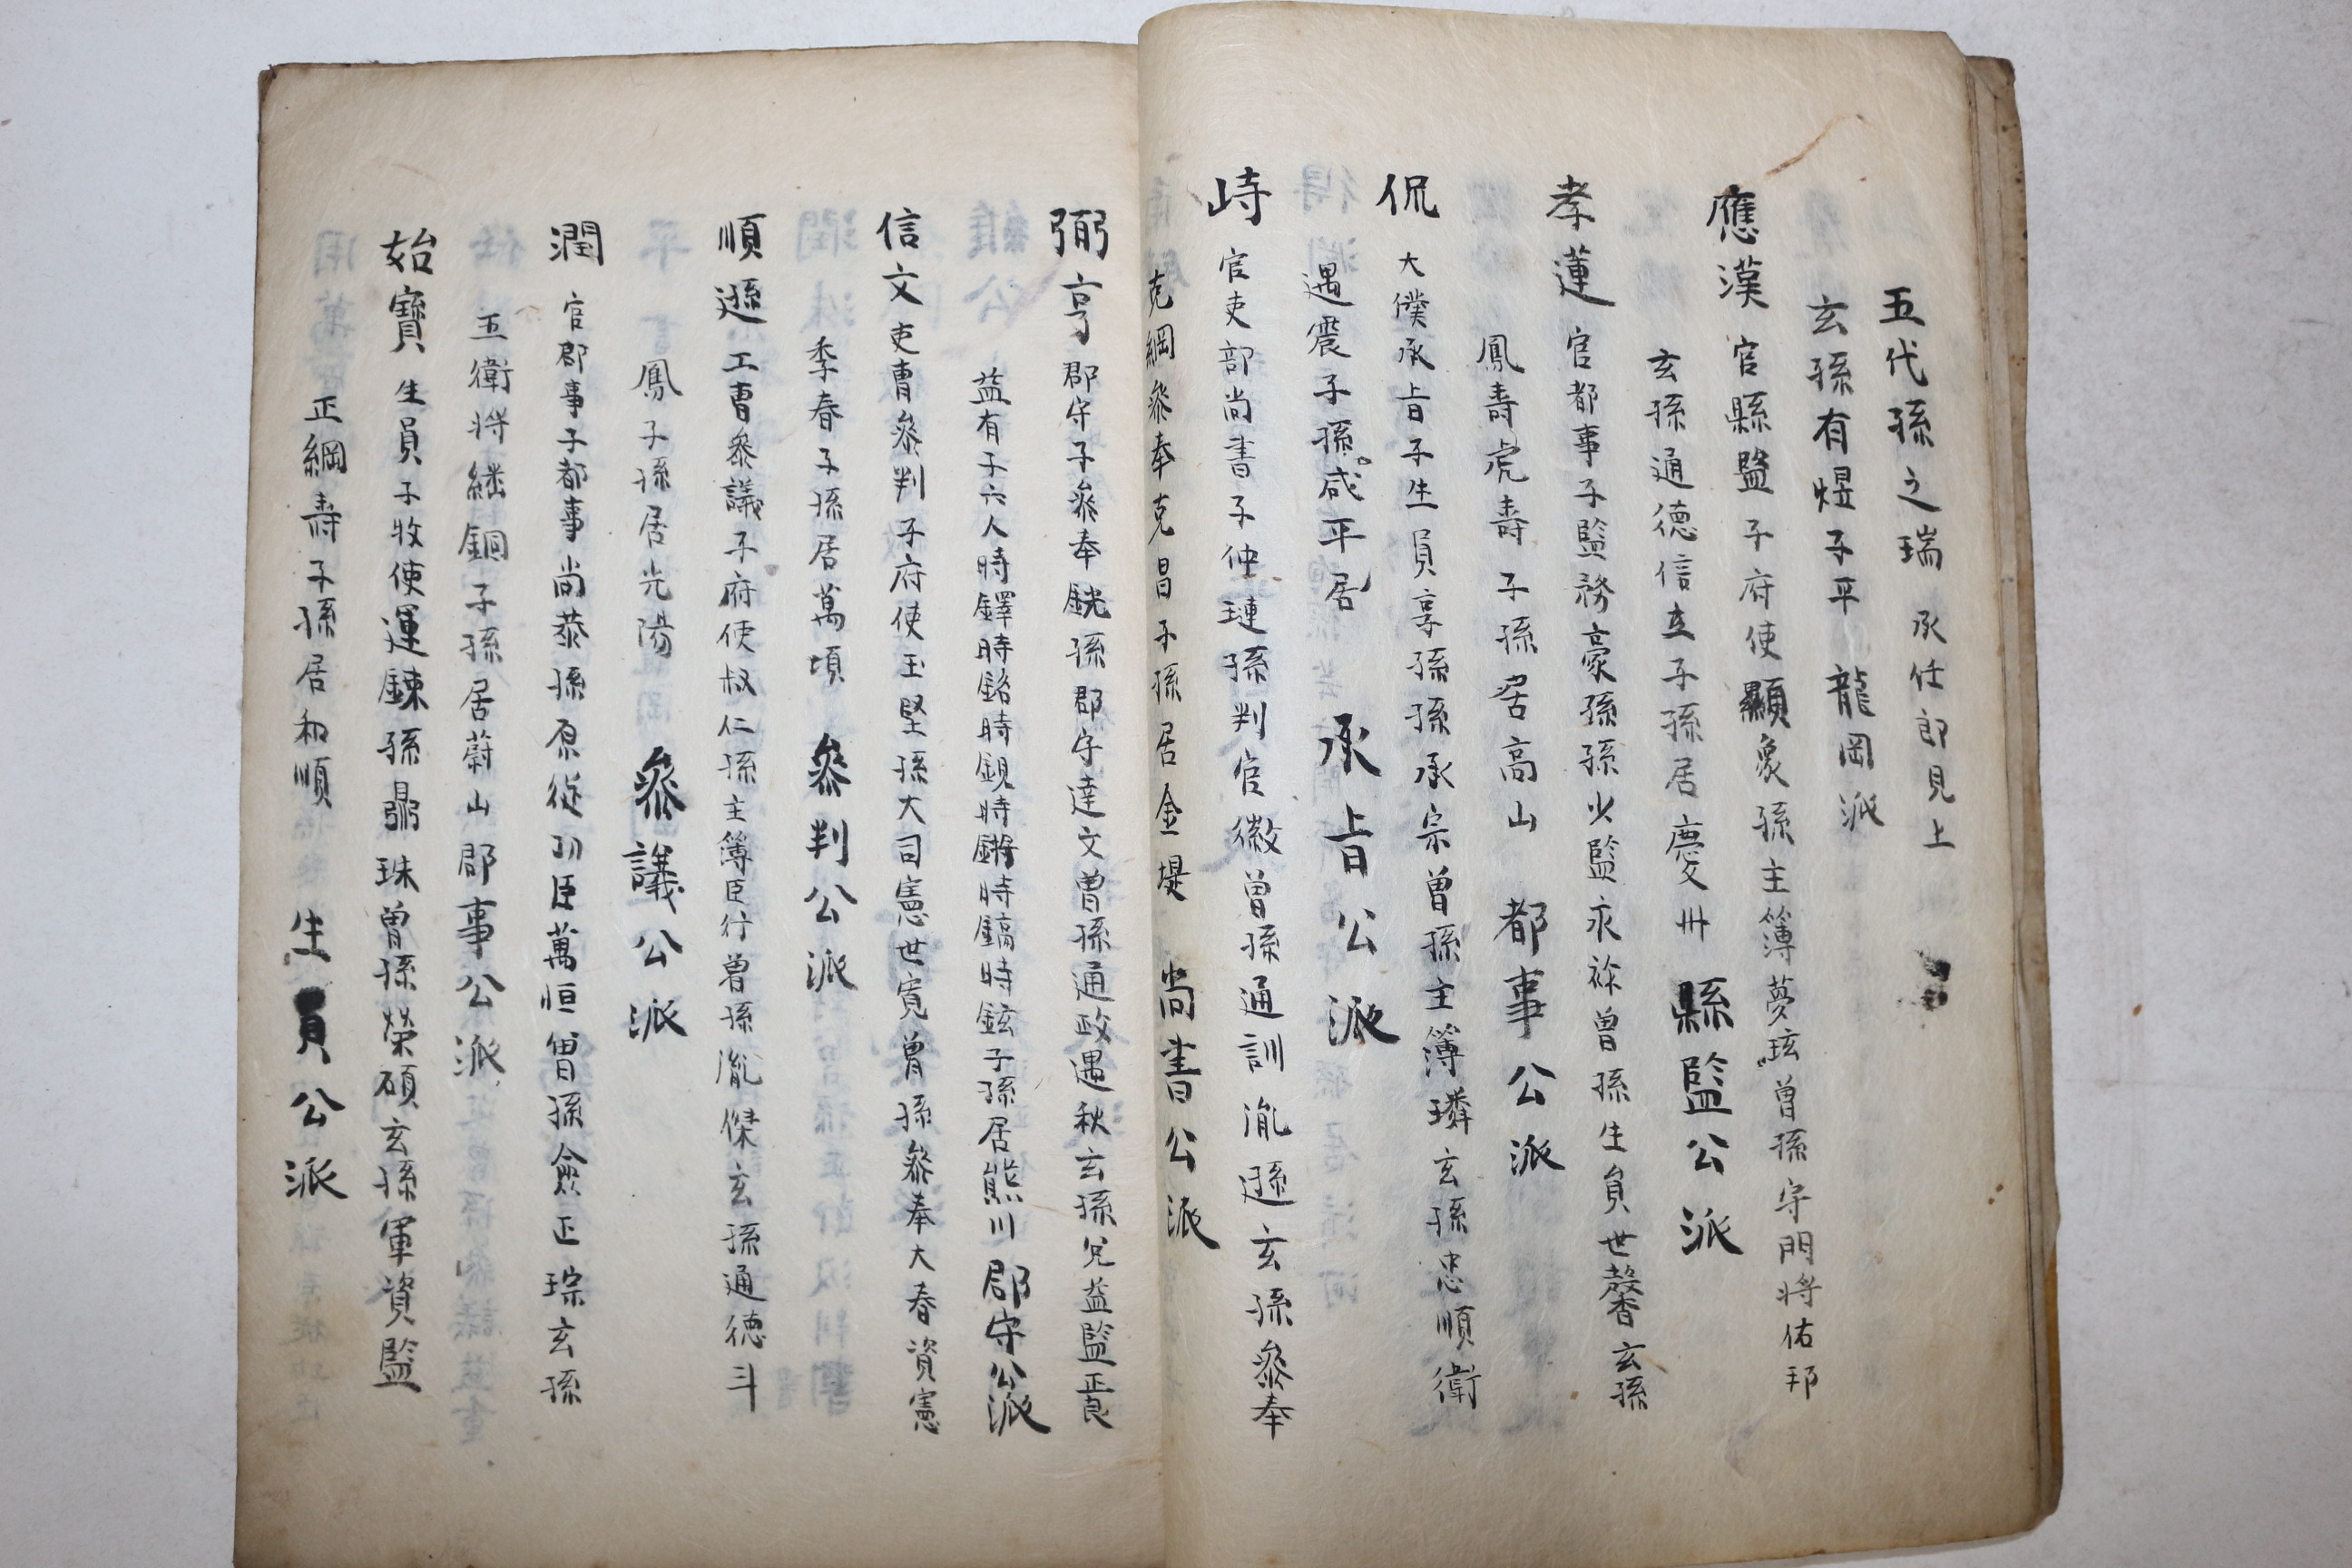 五代孫之瑞 承仕郎見上
玄孫有熤子平 龍岡派
應漢 官縣監子府使顯象孫主簿夢玹曾孫守門將佑邦
玄孫通德信立子孫居慶州 縣監公派
孝蓮 官都事子監務豪孫孫少監永祢曾孫生員世馨玄孫
鳳壽虎壽子孫居高山 都事公派
侃 大僕承旨子生員享孫孫承宗曾孫主簿璘玄孫忠順衛
遇震子孫咸平居 承旨公派
峙 官吏部尚書子仲璉孫判官徽曾孫通訓胤遜玄孫叅奉
克綱叅奉克昌子孫居金堤 尚書公派
弼亨 郡守子叅奉銧孫郡守達文曾孫通政遇秋玄孫兄益監
益有子六人時鐸時銘時鋧時鏘時鎬時鉉子孫居熊川 郡守公派
信文 吏曹叅判子府使玉堅孫大司憲世寬曾孫叅奉大春資憲
季春子孫居萬頃 叅判公派
順遜 工曹叅議子府使叔仁孫主簿臣行曾孫胤傑玄孫通德斗
鳳子孫居光陽 叅議公派
潤 官郡事子都事尚恭孫原從功臣萬恒曾孫僉正琮玄孫
五衛將繼銅子孫居蔚山郡事公派
始寶 生員子牧使運鍊孫鼎珠曾孫榮碩玄孫軍資監
正綱壽子孫居和順 生員公派